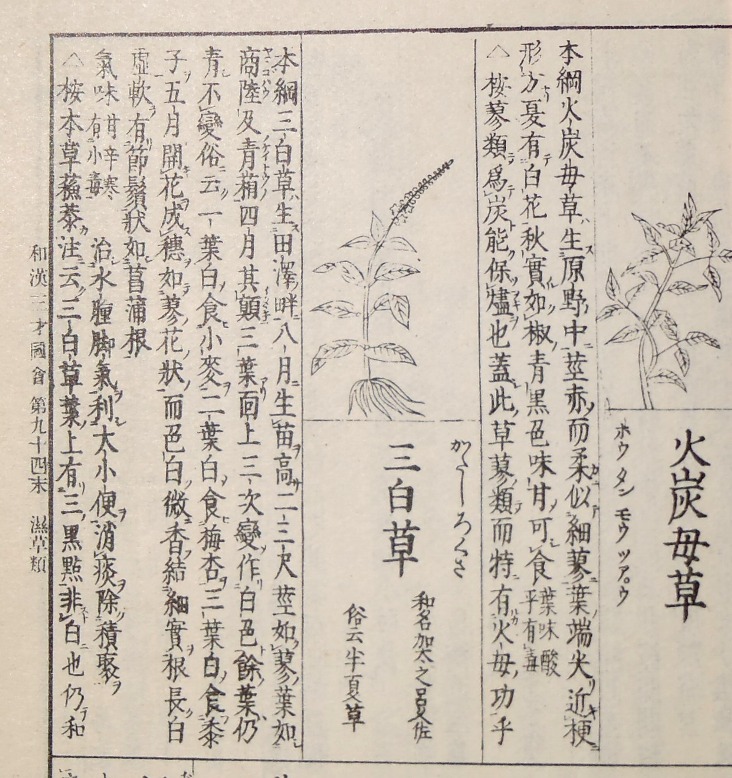 火炭毋草
ホウ タン モウ ツアウ
本綱火炭毋草生原野中莖赤而柔似細蓼葉端尖近梗
形方夏有白花秋實如椒青黒色味甘可食葉味酸平有毒
△ 桉蓼類爲炭能保爐也蓋此草蓼類而特有火毋功乎
三白草
かたしろくさ
和名加太之呂久佐
俗云半夏草
本綱三白草生田澤畔八月生苗高二三尺莖如蓼葉如
商陸及青葙四月其顚三葉靣上三次變作白色餘葉仍
青不變俗云一葉白食小麥二葉白食梅杏三葉白食黍
子五月開花成穗如蓼花狀而色白微香結細實根長白
虚軟有節鬚狀如菖蒲根
氣味甘辛寒有小毒 治水腫脚氣利大小便消痰除積聚
△ 桉本草蘓恭注云三白草葉上有三黒點非白也仍和
和漢三才圖會 第九十四末 濕草類